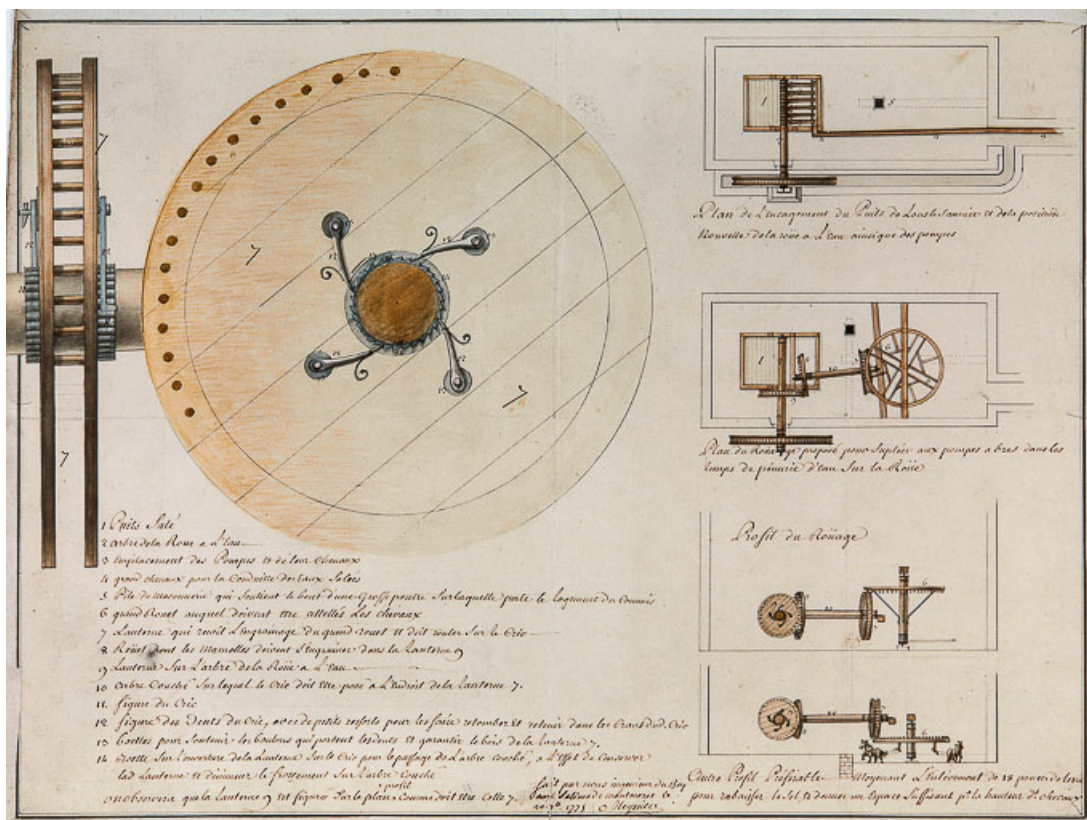 Plan de L'Encagement du Puits de Lonsle Saunier et de la position
Nouvelle de la roüe a L'Eau ainsi que des pompes
Plan du Roüage proposé pour Supléer aux pompes a bras dans les
temps de pénurie d'eau Sur la Roüe
Profil du Roüage
1 Puits Salé
2 arbre de la Roue a L'Eau
3 Emplacement des Pompes et de leur Chenaux
4 grand chenaux pour la Conduitte des Eaux Salées
5 Pile de maconnerie qui Soutient le bout d'une Grosse poutre Sur laquelle porte le logement du Commis
6 grand Rouet auquel doivent etre attellés Les chevaux
7 Lanterne qui reçoit L'engrainage du grand rouet et doit router Sur le Cric
8 Roüet dont les Mamelles doivent S'engrainer dans la Lanterne 9
9 Lanterne Sur L'arbre de la Roüe a L'Eau
10 arbre Couché Sur lequel le Cric doit etre posé a L'Endroit de la lanterne 7.
11 figure du Cric
12 figure des Dents du Cric, avec de petits ressorts pour les faire retomber et retenir dans les Crans dud. Cric
13 boettes pour Soutenir les boulons qui portent les dents et garantir le bois de la Lanterne 7.
14 Sur L'ouverture de la Lanterne Sur le Cric pour le passage de L'arbre Couché, a L'Effet de Conserver
lad Lanterne et diminuer le frottement Sur L'arbre Couché
profil
on observera que la lanterne 9 est figurée Sur le plan Comme doit etre Celle 7.
fait par nous ingénieur du Roy
1775
Autre Profil Préférable Moyenant L'enlevement de 18 pouces de
pour rabaisser le Sol, et donner un Espace Suffisant pr. la hauteur Ds. chevaux